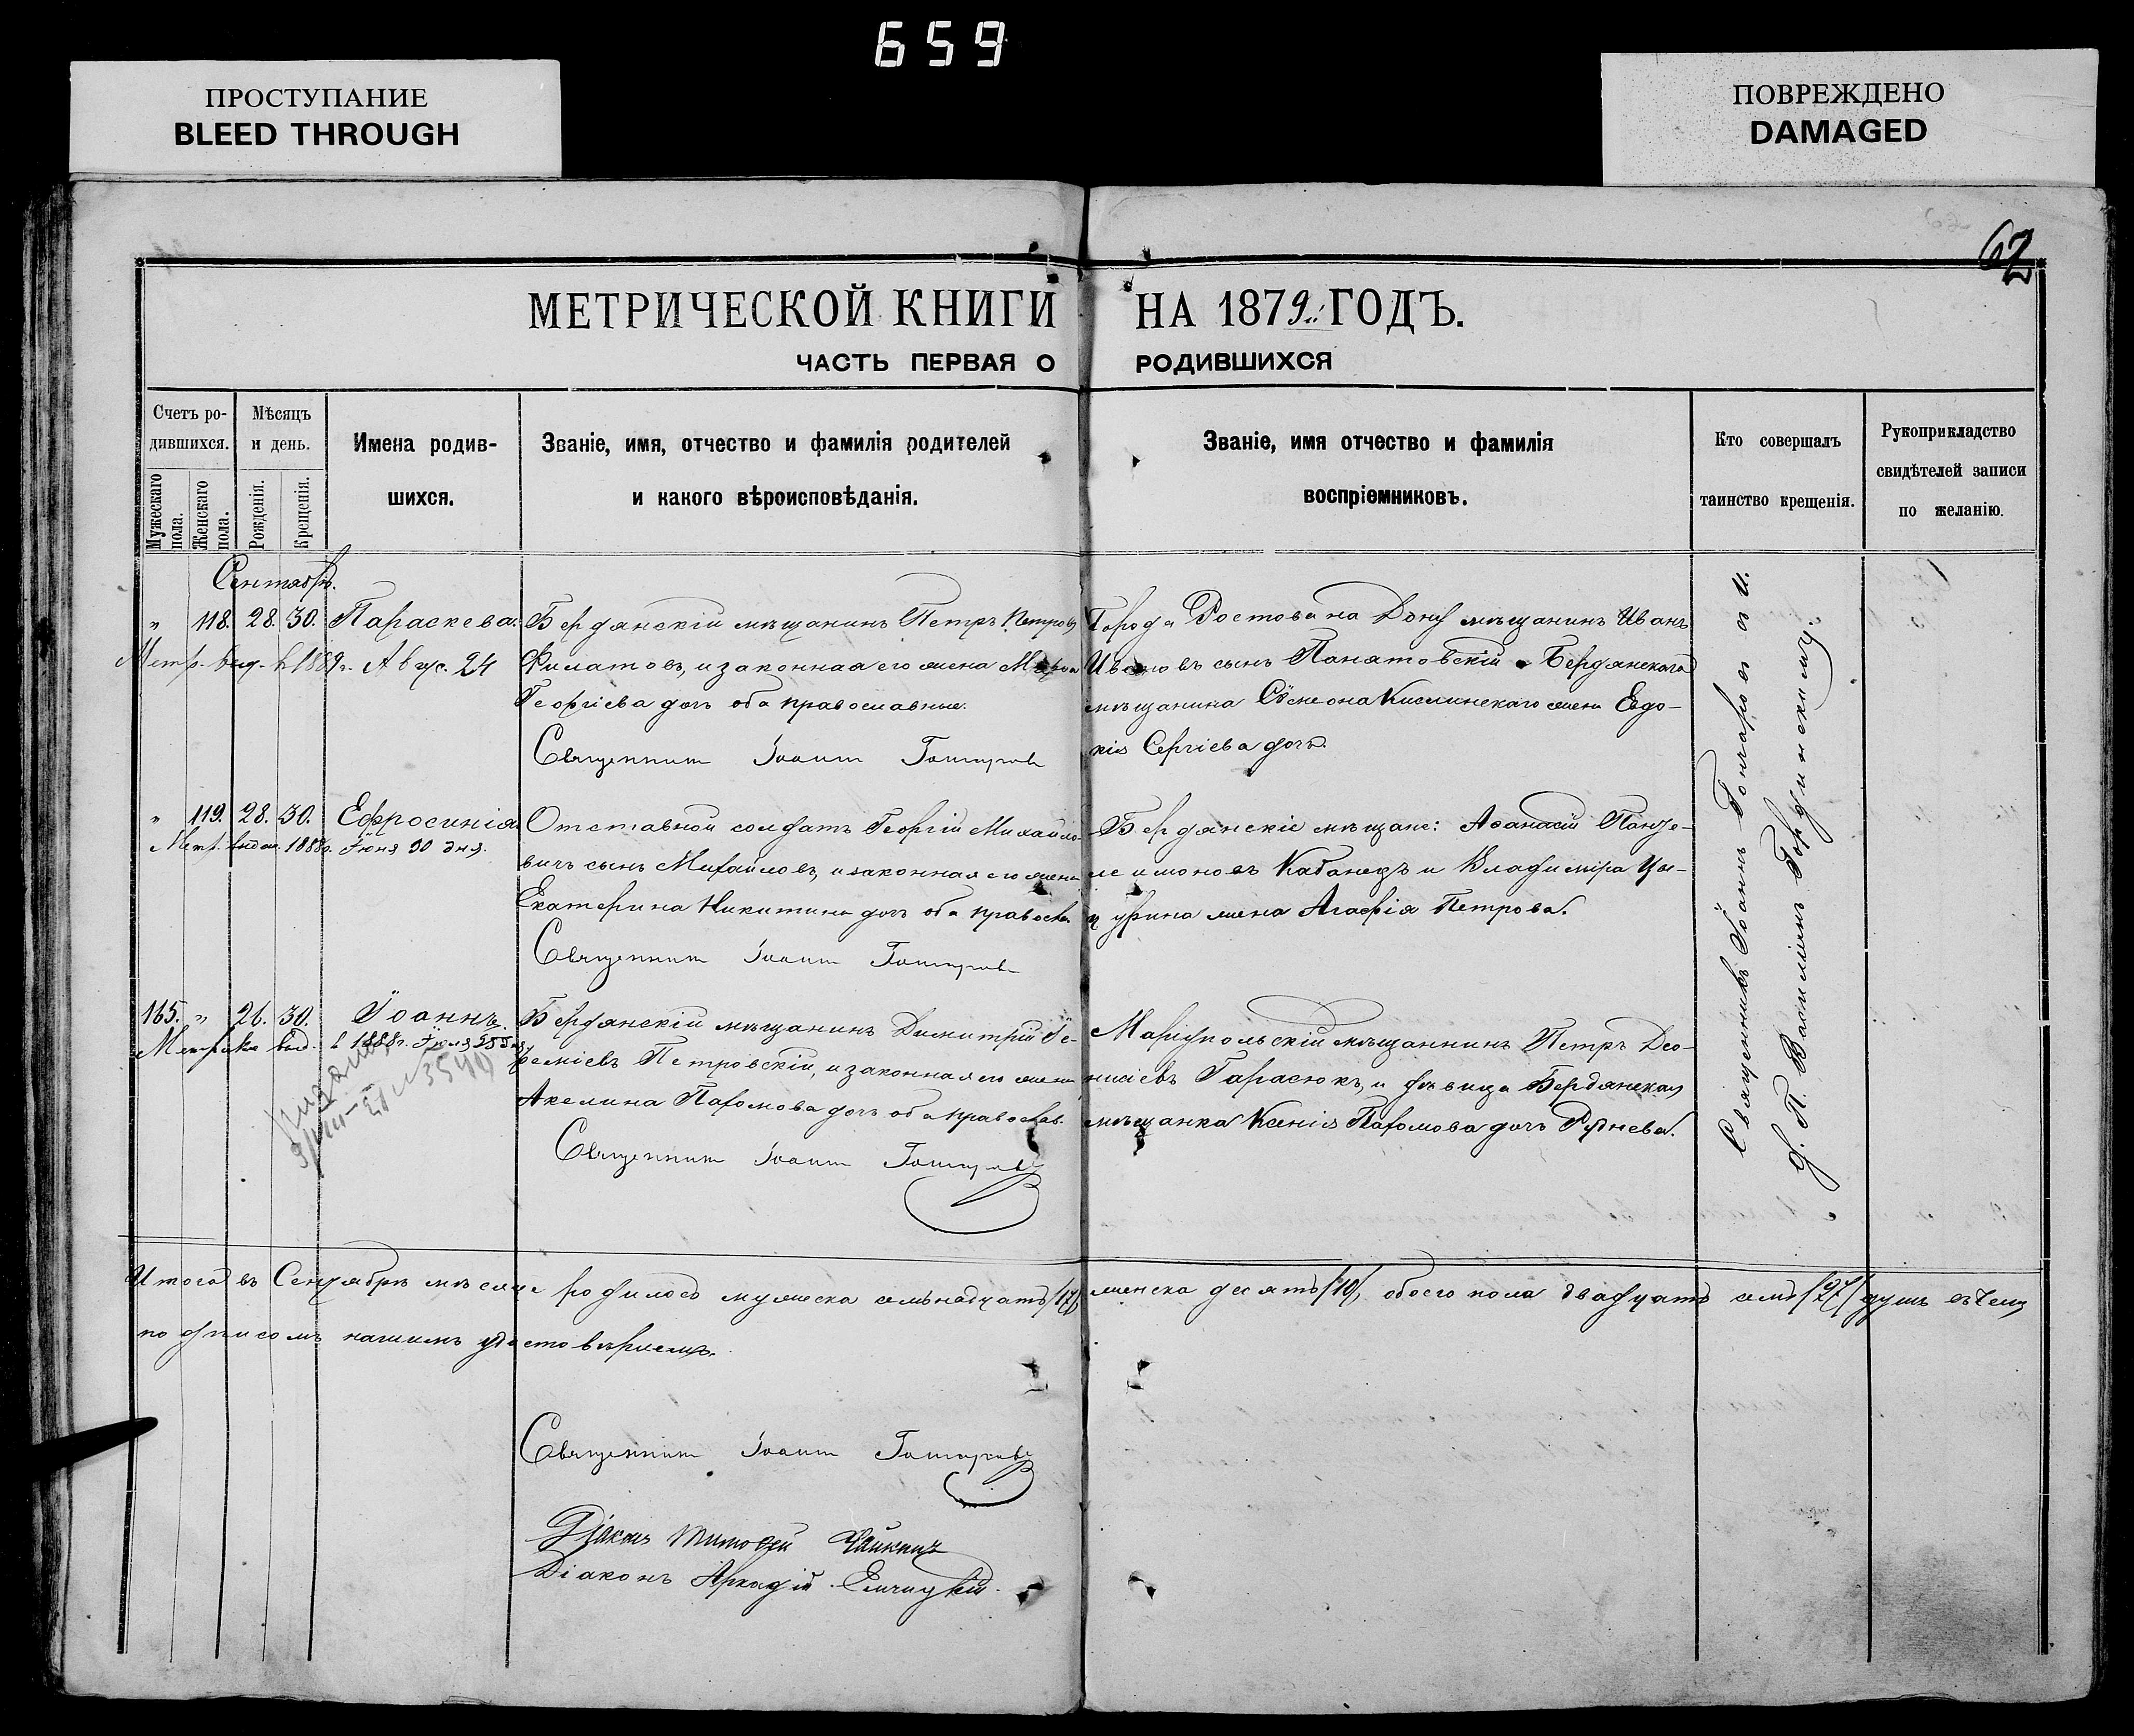 659
ПРОСТУПАНИЕ
BLEED THROUGH
ПОВРЕЖДЕНО
DAMAGED
62
МЕТРИЧЕСКОЙ КНИГИ НА 1879 ГОДЪ.
ЧАСТЬ ПЕРВАЯ О РОДИВШИХСЯ
Счетъ ро-
дившихся.
Мужескаго пола.
Женскаго пола.
Мѣсяцъ
и день.
Рожденія.
Крещенія.
Имена родив-
шихся.
Званіе, имя, отчество и фамилія родителей
и какого вѣроисповѣданія.
Званіе, имя отчество и фамилія
воспріемниковъ.
Кто совершалъ
таинство крещенія.
Рукоприкладство
свидѣтелей записи
по желанію.
Сентябрь.
" 118. 28. 30. Параскева.
Метр. выд. в 1889г. Авгус. 24
Бердянскій мѣщанинъ Петръ Петровъ
Филатовъ, и законная его жена
Георгіева дочь оба православные.
Священникъ Іоаннъ Гончаровъ
Города Ростова на Дону мѣщанинъ Иванъ
Ивановъ сынъ Понятовскій и Бердянскаго
мѣщанина Сѵмеона Кислинскаго жена Евдо-
кія Сергіева дочь.
" 119. 28. 30. Ефросинія
Метр. выдан. 1888г. Іюня 30 дня.
Отставной солдатъ Георгій Михайло-
вичъ сынъ Михайловъ, и законная его жена
Екатерина Никитина дочь оба православ.
Священникъ Іоаннъ Гончаровъ
Бердянскіе мѣщане: Аѳанасій Панте-
леимоновъ Кабанецъ и Владиміра Цы-
цурина жена Агафія Петрова.
165. " 26. 30. Іоаннъ.
Метрика выд. в 1888г.
3549
Бердянскій мѣщанинъ Димитрій Іе-
реміевъ Петровскій, и законная его жена
Акелина Пахомова дочь оба православ.
Священникъ Іоаннъ Гончаровъ
Маріупольскій мѣщанинъ Петръ Део-
нисіевъ Гарасюкъ, и дѣвица Бердянская
мѣщанка Ксенія Пахомова дочь Руднева.
Священникъ Іоаннъ Гончаровъ и.
д. П. Василіемъ Гординскимъ.
Итого въ Сентябрѣ мѣсяцѣ родилось мужеска семьнадцать /17/, женска десять /10/, обоего пола двадцать семь /27/ душъ въ чемъ
подписомъ нашимъ удостовѣряемъ.
Священникъ Іоаннъ Гончаровъ
Діаконъ Тимоѳей Чайкинъ
Діаконъ Аркадій